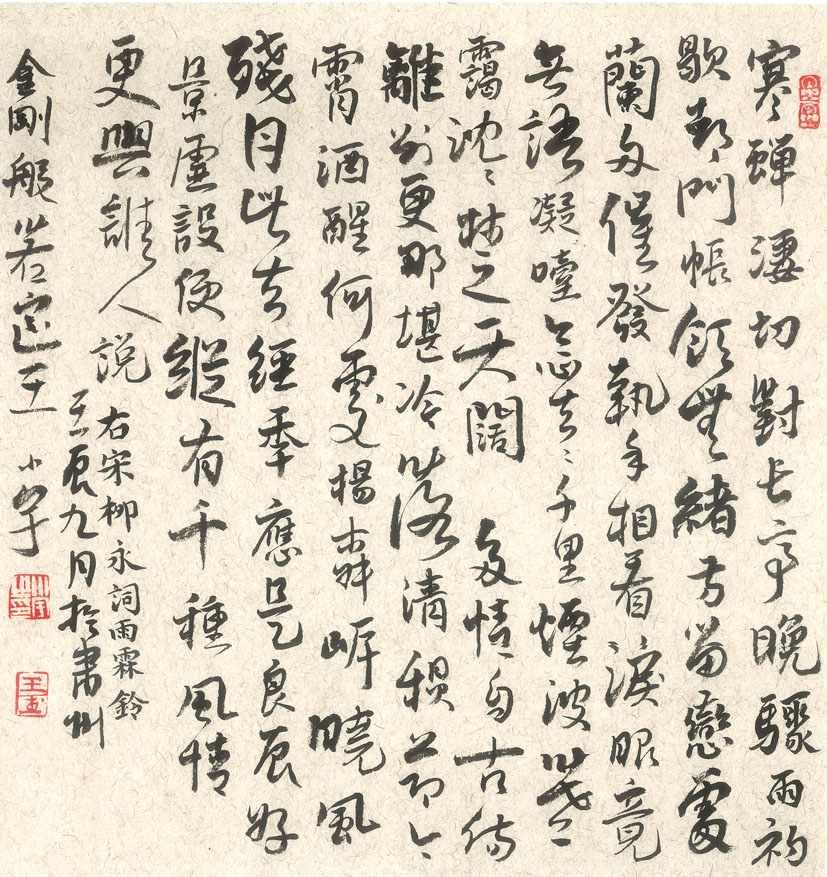 寒蟬淒切對長亭晚驟雨初
歇都門帳飲無緒方留戀處
蘭舟催發執手相看淚眼竟
無語凝噎念去〻千里煙波暮
靄沈〻楚天闊 多情自古傷
離別更那堪冷落清秋節今
宵酒醒何處楊柳岸曉風
殘月此去經年應是良辰好
景虛設便縱有千種風情
更與誰人說
右宋柳永詞雨霖鈴
壬辰九月於肅州
金剛般若 王小宇